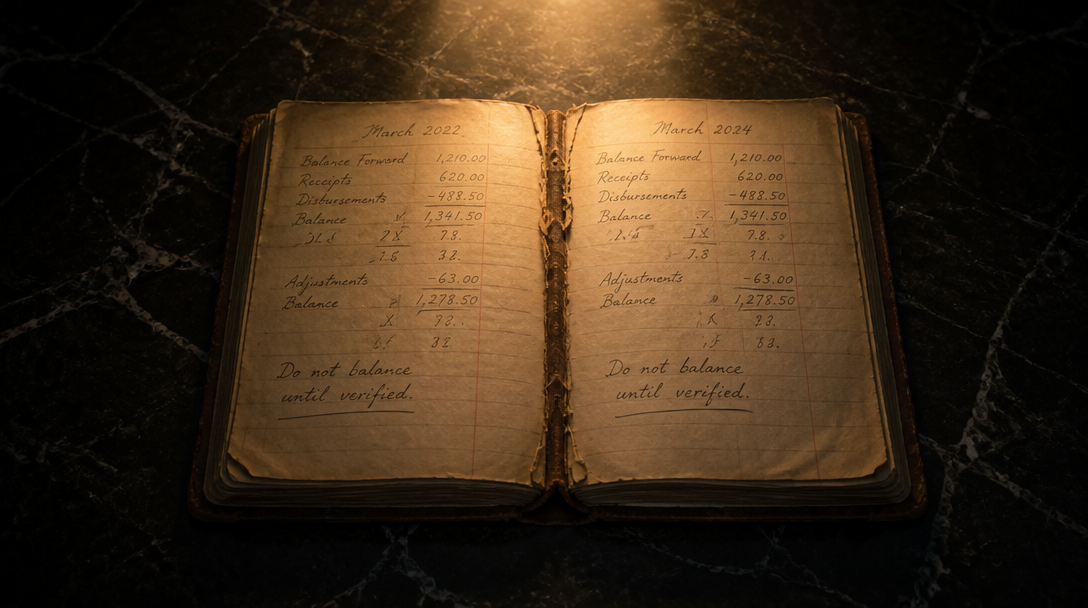 March 2022
Balance Forward 1,210.00
Receipts 620.00
Disbursements -488.50
Balance 1,341.50
Adjustments -63.00
Balance 1,278.50
Do not balance
until verified.
March 2024
Balance Forward 1,210.00
Receipts 620.00
Disbursements -488.50
Balance 1,341.50
Adjustments -63.00
Balance 1,278.50
Do not balance
until verified.